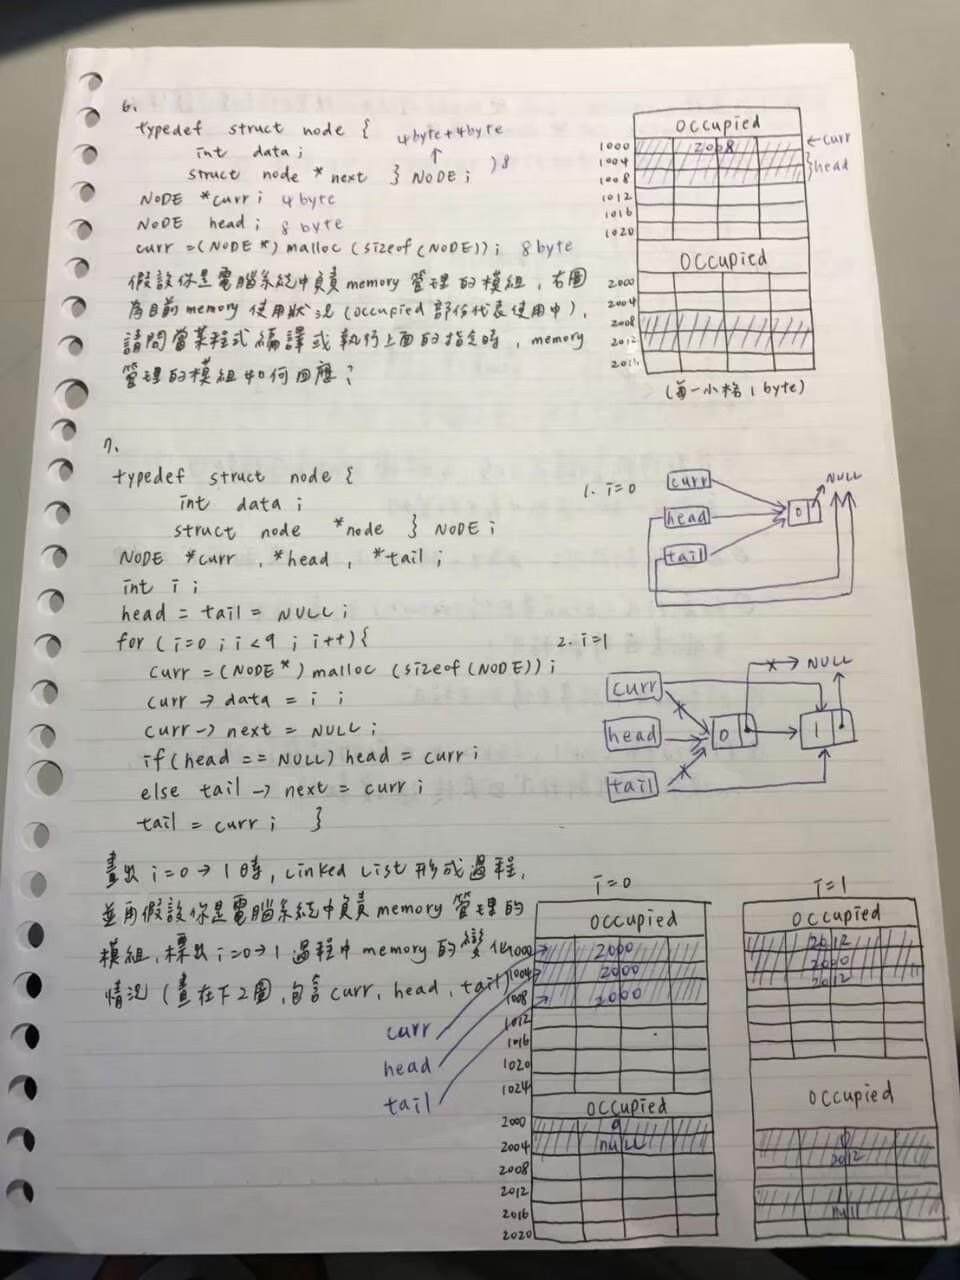 6.
typedef struct node {
int data;
struct node * next } NODE;
4byte+4byte
)8
NODE *curr; 4 byte
NODE head; 8 byte
curr =(NODE*) malloc (sizeof(NODE)); 8 byte
假設你是電腦系統中負責memory管理的模組，右圖
為目前memory使用狀況(occupied部份代表使用中)，
請問當某程式編譯或執行上面的指令時，memory
管理的模組如何回應？
occupied
1000
2008
←curr
1004
head
1008
1012
1016
1020
OCCUPIED
2000
2004
2008
2012
(每一小格1byte)
7.
typedef struct node {
int data;
struct node *node } NODE;
NODE *curr, *head, *tail;
int i;
head = tail = NULL;
for (i=0; i<9; i++){
curr = (NODE*) malloc (sizeof(NODE));
curr → data = i;
curr → next = NULL;
if(head == NULL) head = curr;
else tail → next = curr;
tail = curr; }
1. i=0
curr
head
tail
0
NULL
2. i=1
curr
head
tail
0
1
NULL
畫出i=0→1時，Linked List形成過程，
並再假設你是電腦系統中負責memory管理的
模組，標出i=0→1過程中memory的變化
情況(畫在下2圖，包含curr, head, tail)
curr
head
tail
i=0
occupied
1000
2000
1004
2000
1008
2000
1012
1016
1020
1024
occupied
2000
0
2004
null
2008
2012
2016
2020
i=1
occupied
2012
2000
2012
occupied
0
2012
1
null